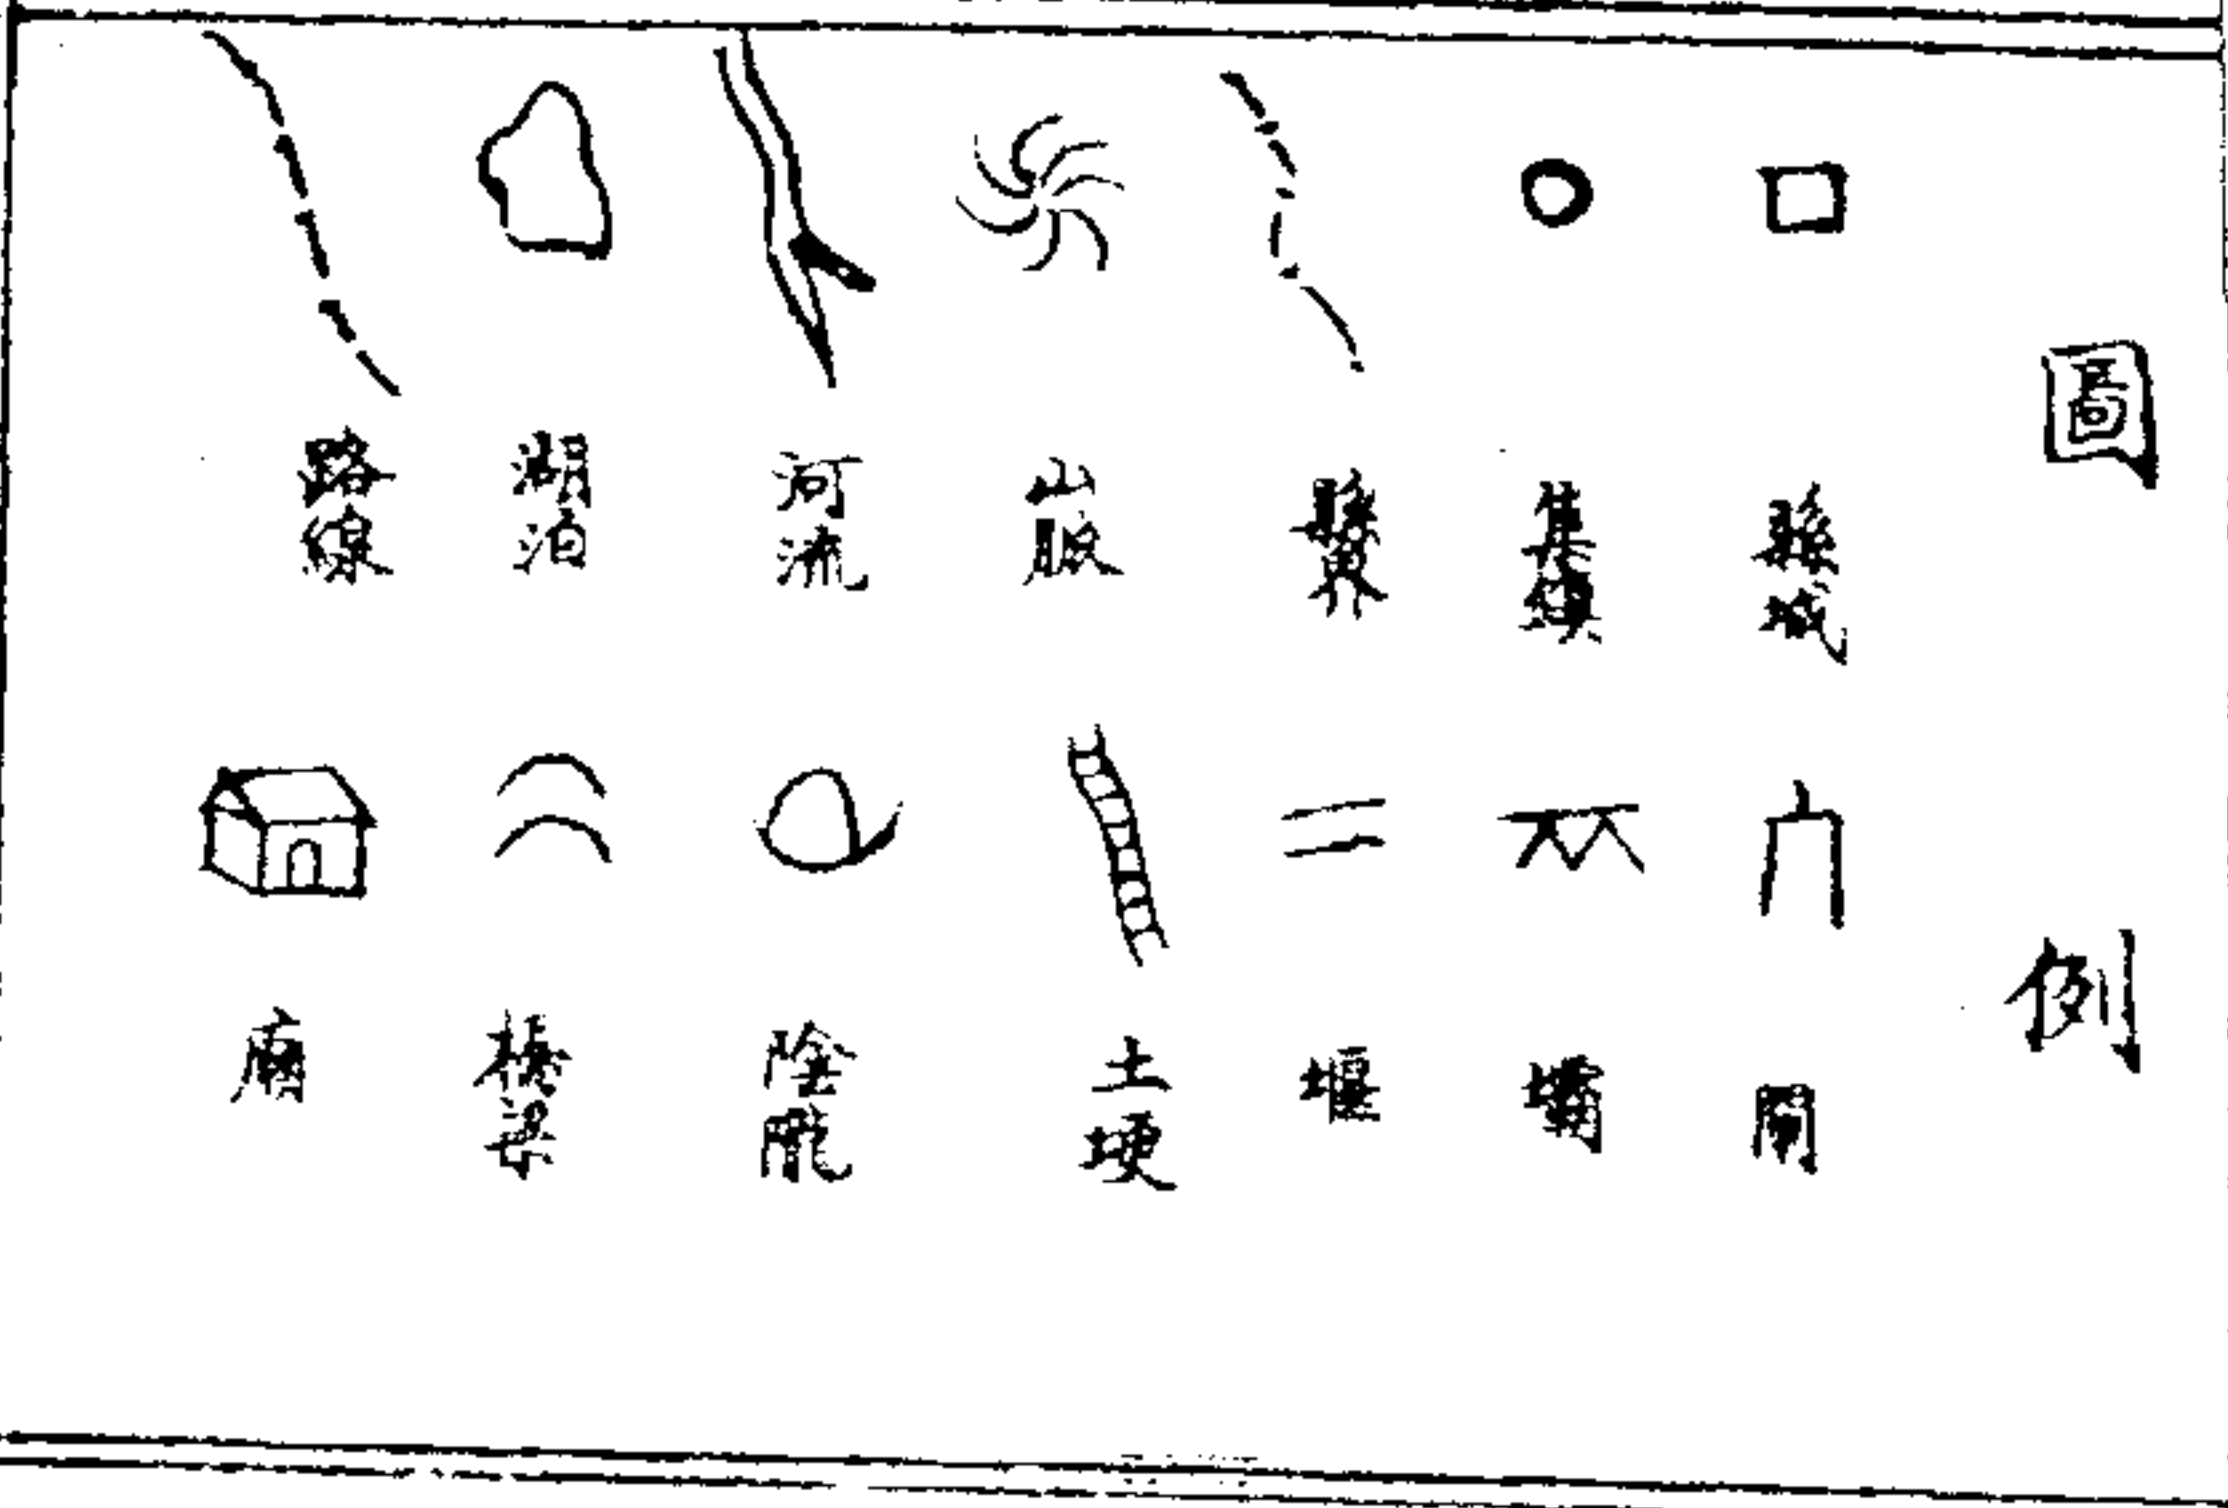 圖例
縣城
集鎮
縣界
山脈
河流
湖泊
路線
閘
壩
堰
土埂
陰
橋梁
廟